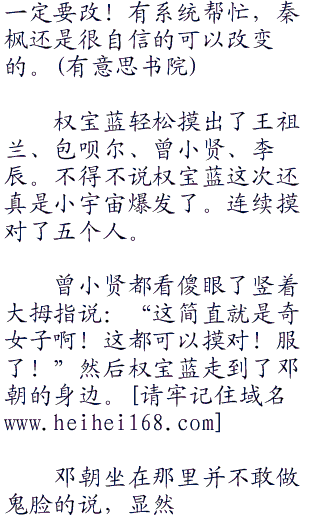 一定要改！有系统帮忙，秦
枫还是很自信的可以改变
的。(有意思书院)
权宝蓝轻松摸出了王祖
兰、包呗尔、曾小贤、李
辰。不得不说权宝蓝这次还
真是小宇宙爆发了。连续摸
对了五个人。
曾小贤都看傻眼了竖着
大拇指说：“这简直就是奇
女子啊！这都可以摸对！服
了！”然后权宝蓝走到了邓
朝的身边。[请牢记住域名
www.heihei168.com]
邓朝坐在那里并不敢做
鬼脸的说，显然